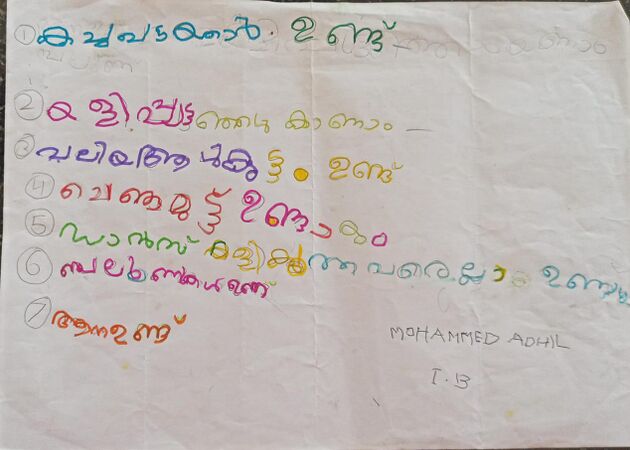 ① കച്ചവടക്കാർ. ഉണ്ട്
② കളിപ്പാട്ടങ്ങളെ കാണാം —
③ വലിയആൾകൂട്ടം ഉണ്ട്
④ ചെണ്ടമുട്ട് ഉണ്ടാകും
⑤ ഡാൻസ് കളിക്കുന്നവരെല്ലാം
⑥ ബലൂണുകൾഉണ്ട്
⑦ ആനഉണ്ട്
MOHAMMED ADHIL
I.B